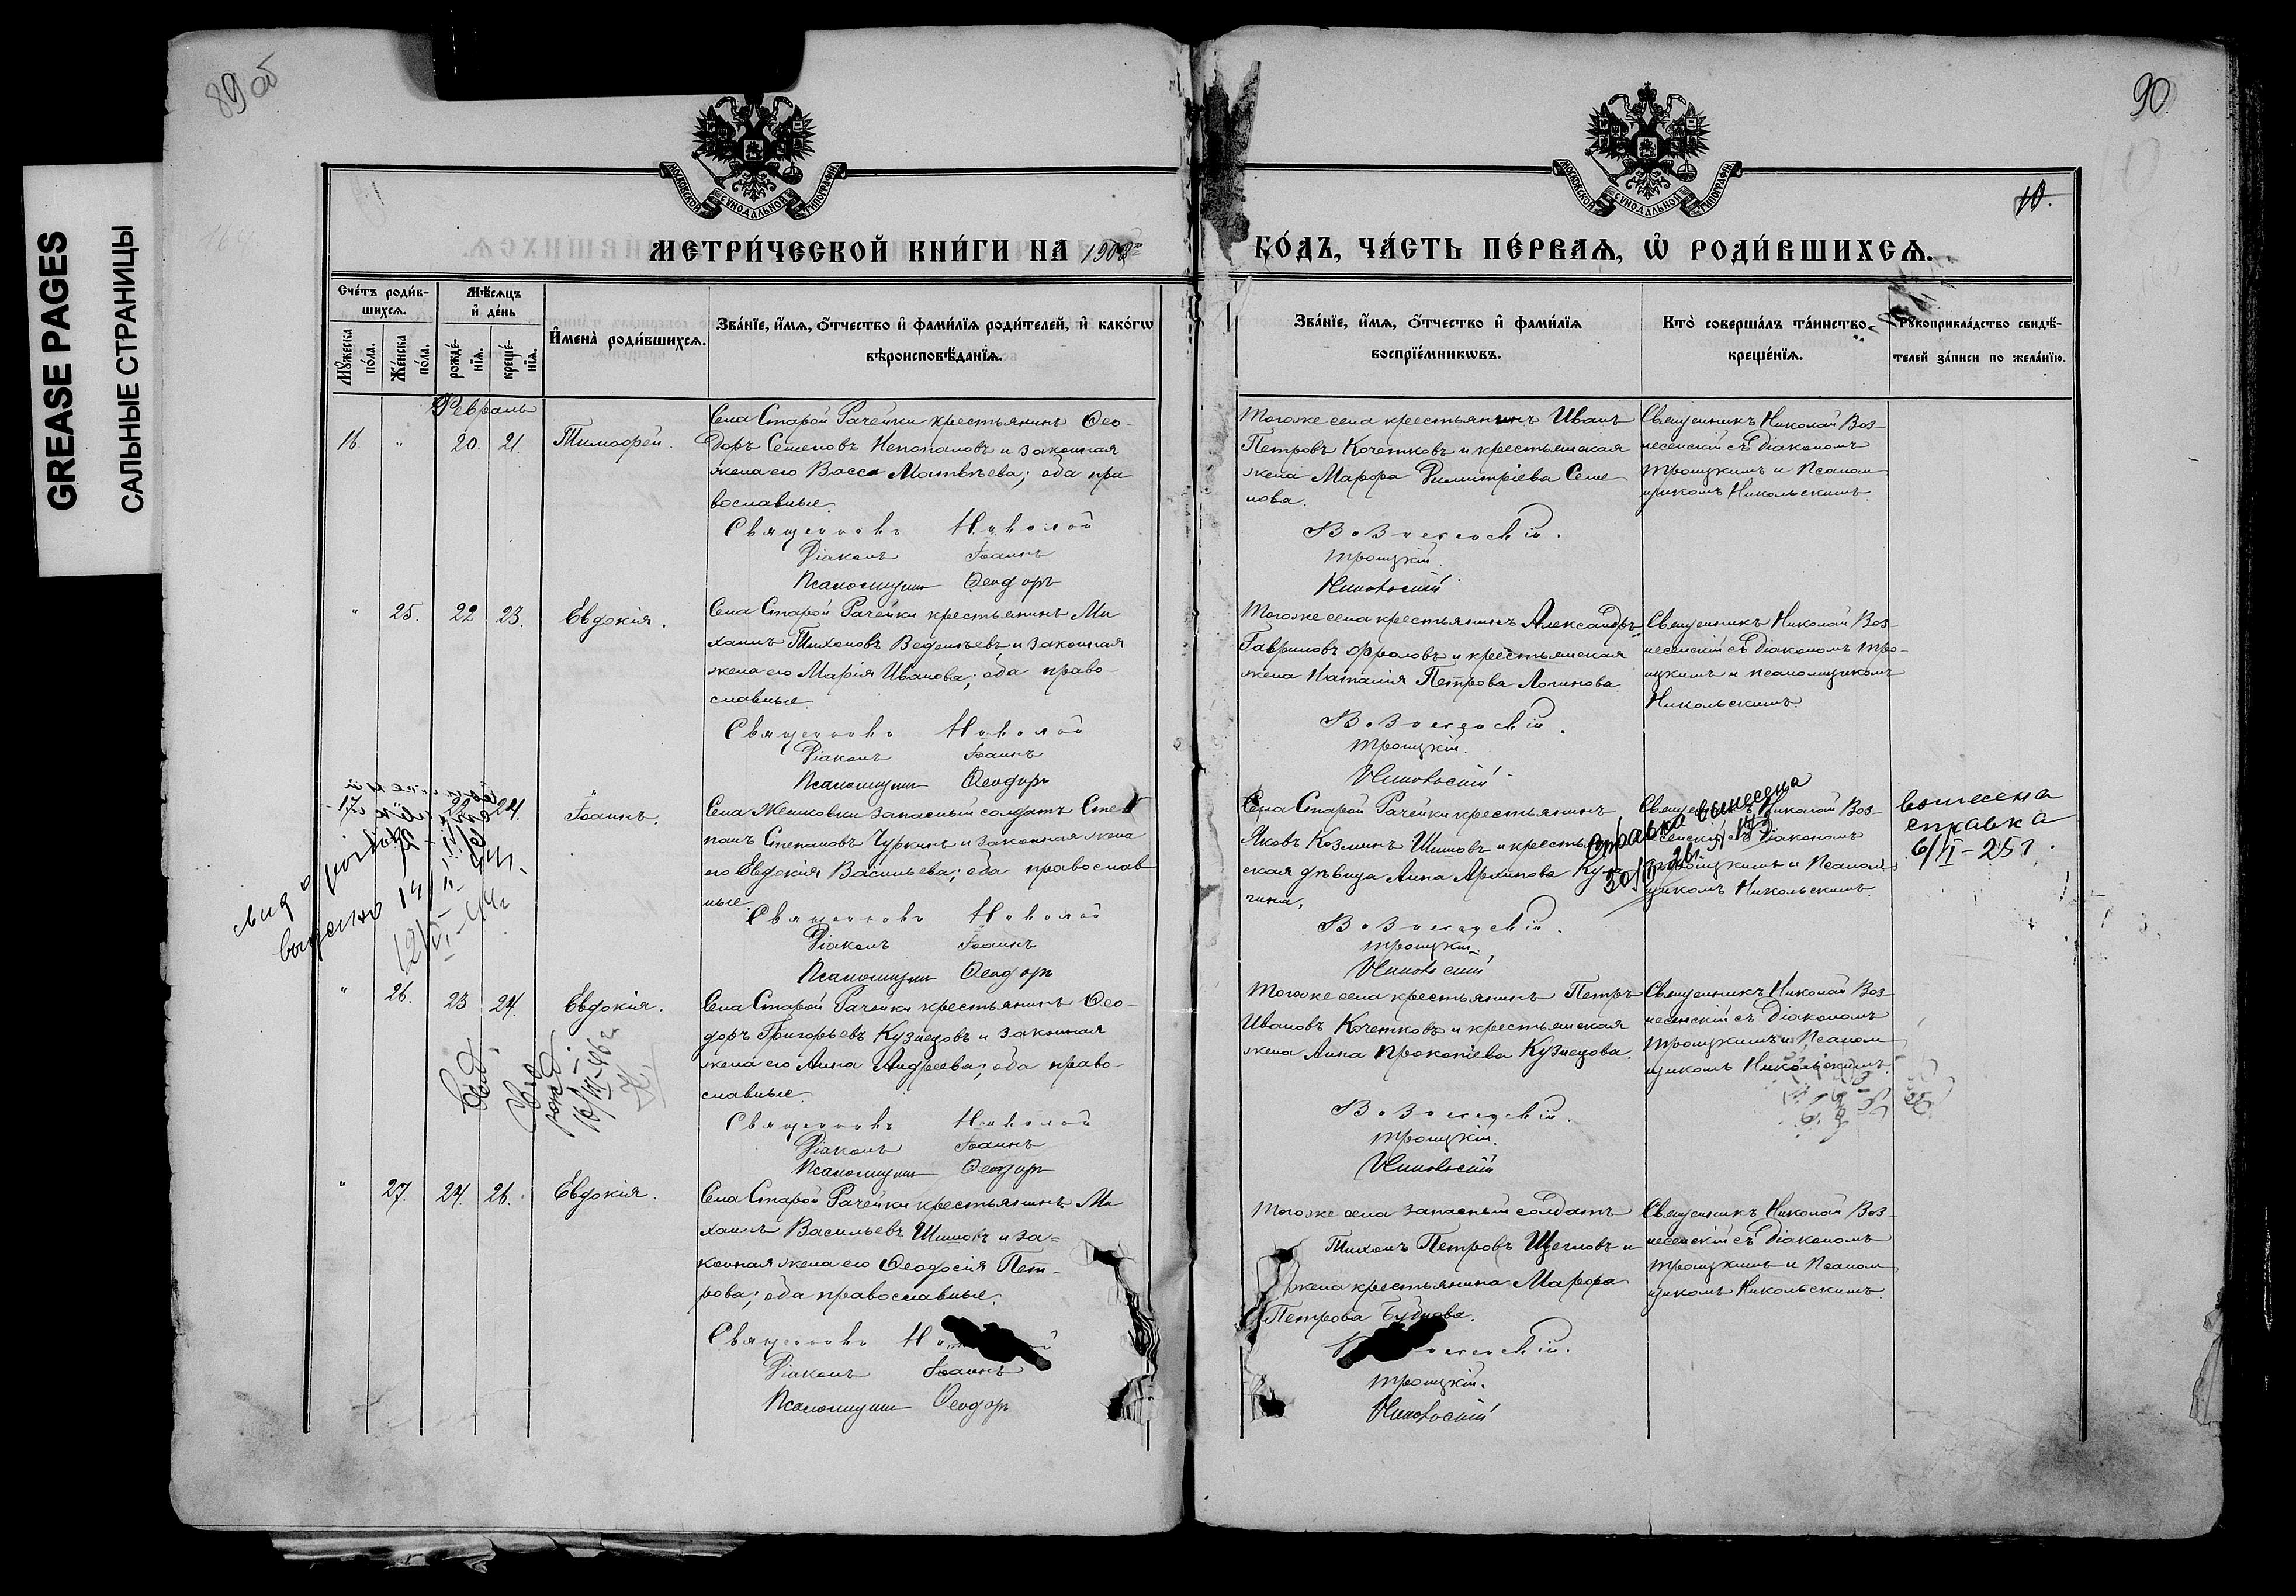 GREASE PAGES
САЛЬНЫЕ СТРАНИЦЫ
89 об
90
10.
МОСКОВСКОЙ СѴНОДАЛЬНОЙ ТИПОГРАФІИ
МОСКОВСКОЙ СѴНОДАЛЬНОЙ ТИПОГРАФІИ
МЕТРИ́ЧЕСКОЙ КНИ́ГИ НА
ГО́ДЪ, ЧА́СТЬ ПЕ́РВАѦ, Ѡ҆ РОДИ́ВШИХСѦ.
Сче́тъ роди́в-
шихсѧ.
Мꙋжеска по́ла.
Же́нска по́ла.
Мѣ́сѧцъ
и҆ де́нь
рожде́-
нїѧ.
креще́-
нїѧ.
И҆мена̀ роди́вшихсѧ.
Зва́нїе, и҆́мѧ, ѻ҆́тчество и҆ фами́лїѧ роди́телей, и҆ како́гѡ
вѣроисповѣ́данїѧ.
Зва́нїе, и҆́мѧ, ѻ҆́тчество и҆ фами́лїѧ
воспрїе́мникѡвъ.
Кто̀ соверша́лъ та́инство
креще́нїѧ.
Рꙋкоприкла́дство свидѣ́-
телей за́писи по жела́нїю.
Февраль
16 " 20. 21. Тимофей.
Села Старой Рачейки крестьянинъ Ѳео-
доръ Семеновъ Непопаловъ и законная
жена его Васса Матвѣева; оба пра
вославные.
Священникъ Николай
Діаконъ Іоаннъ
Псаломщикъ Ѳеодоръ
Тогоже села крестьянинъ Иванъ
Петровъ Кочетковъ и крестьянская
жена Марфа Димитріева Семе
нова.
Вознесенскій.
Троицкій.
Никольскій
Священникъ Николай Воз-
несенскій съ Діакономъ
Троицкимъ и Псалом
щикомъ Никольскимъ.
" 25. 22 23. Евдокія.
Села Старой Рачейки крестьянинъ Ми
хаилъ Тихоновъ Веденѣевъ и законная
жена его Марія Иванова; оба право-
славные.
Священникъ Николай
Діаконъ Іоаннъ
Псаломщикъ Ѳеодоръ
Тогоже села крестьянинъ Александръ
Гавриловъ Фроловъ и крестьянская
жена Наталія Петрова Логинова.
Вознесенскій.
Троицкій.
Никольскій
Священникъ Николай Воз-
несенскій съ Діакономъ Тро-
ицкимъ и псаломщикомъ
Никольскимъ.
17 22 24. Іоаннъ.
запасный солдатъ Сте
панъ Степановъ Чуркинъ и законная жена
его Евдокія Васильева; оба православ
ные.
Священникъ Николай
Діаконъ Іоаннъ
Псаломщикъ Ѳеодоръ
Села Старой Рачейки крестьянинъ
Яковъ Козминъ Шишовъ и крестьян
ская дѣвица Анна Архипова
Вознесенскій.
Троицкій.
Никольскій
Священникъ Николай Воз-
несенскій съ Діакономъ
Троицкимъ и Псалом
щикомъ Никольскимъ.
справка вынесена
вынесена
справка
6/II-25г.
выдано
" 26. 23 24. Евдокія.
Села Старой Рачейки крестьянинъ Ѳео-
доръ Григорьевъ Кузнецовъ и законная
жена его Анна Андреева; оба право-
славные.
Священникъ Николай
Діаконъ Іоаннъ
Псаломщикъ Ѳеодоръ
Тогоже села крестьянинъ Петръ
Ивановъ Кочетковъ и крестьянская
жена Анна Прокопіева Кузнецова.
Вознесенскій.
Троицкій.
Никольскій
Священникъ Николай Воз-
несенскій съ Діакономъ
Троицкимъ и Псалом
щикомъ Никольскимъ.
" 27. 24. 26. Евдокія.
Села Старой Рачейки крестьянинъ Ми
хаилъ Васильевъ Шишовъ и за=
конная жена его Ѳеодосія Пет-
рова; оба православные.
Священникъ
Діаконъ Іоаннъ
Псаломщикъ Ѳеодоръ
Тогоже села запасный солдатъ
Тихонъ Петровъ Щегловъ и
жена крестьянина Марфа
Петрова
Троицкій.
Никольскій
Священникъ Николай Воз-
несенскій съ Діакономъ
Троицкимъ и Псалом
щикомъ Никольскимъ.